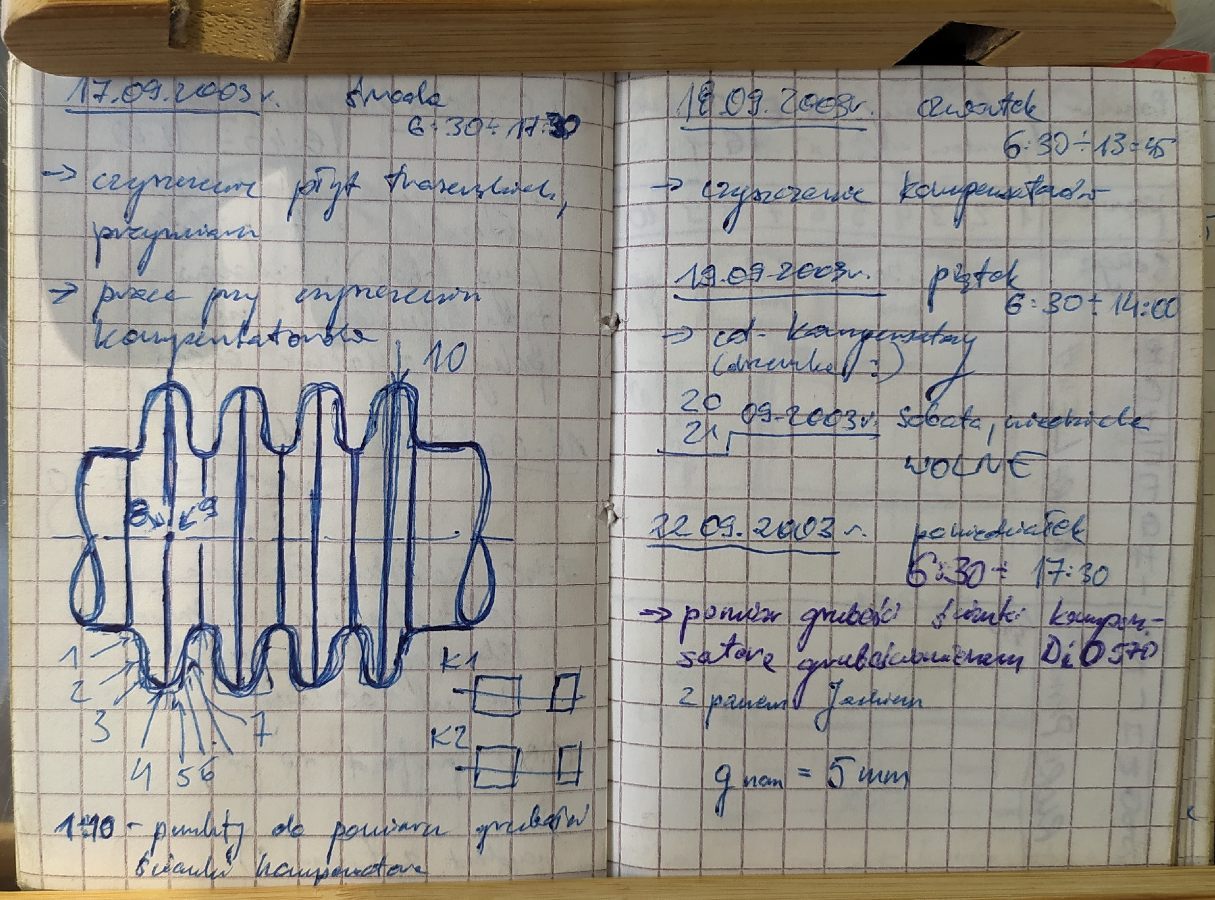 17.09.2003r. środa
6:30÷17:30
→ czyszczenie płyt
→ praca przy czyszczeniu
kompensatorów
10
8 9
1
2
3
4 5 6 7
K1
K2
1÷10 - punkty do pomiaru grubości
ścianki kompensatora
18.09.2003r. czwartek
6:30÷13:45
→ czyszczenie kompensatorów
19.09.2003r. piątek
6:30÷14:00
→ cd. kompensatory
20
21 09.2003r. sobota, niedziela
WOLNE
22.09.2003r. poniedziałek
6:30÷17:30
→ pomiar grubości ścianki kompen-
satora grubościomierzem
z panem
g nom = 5 mm